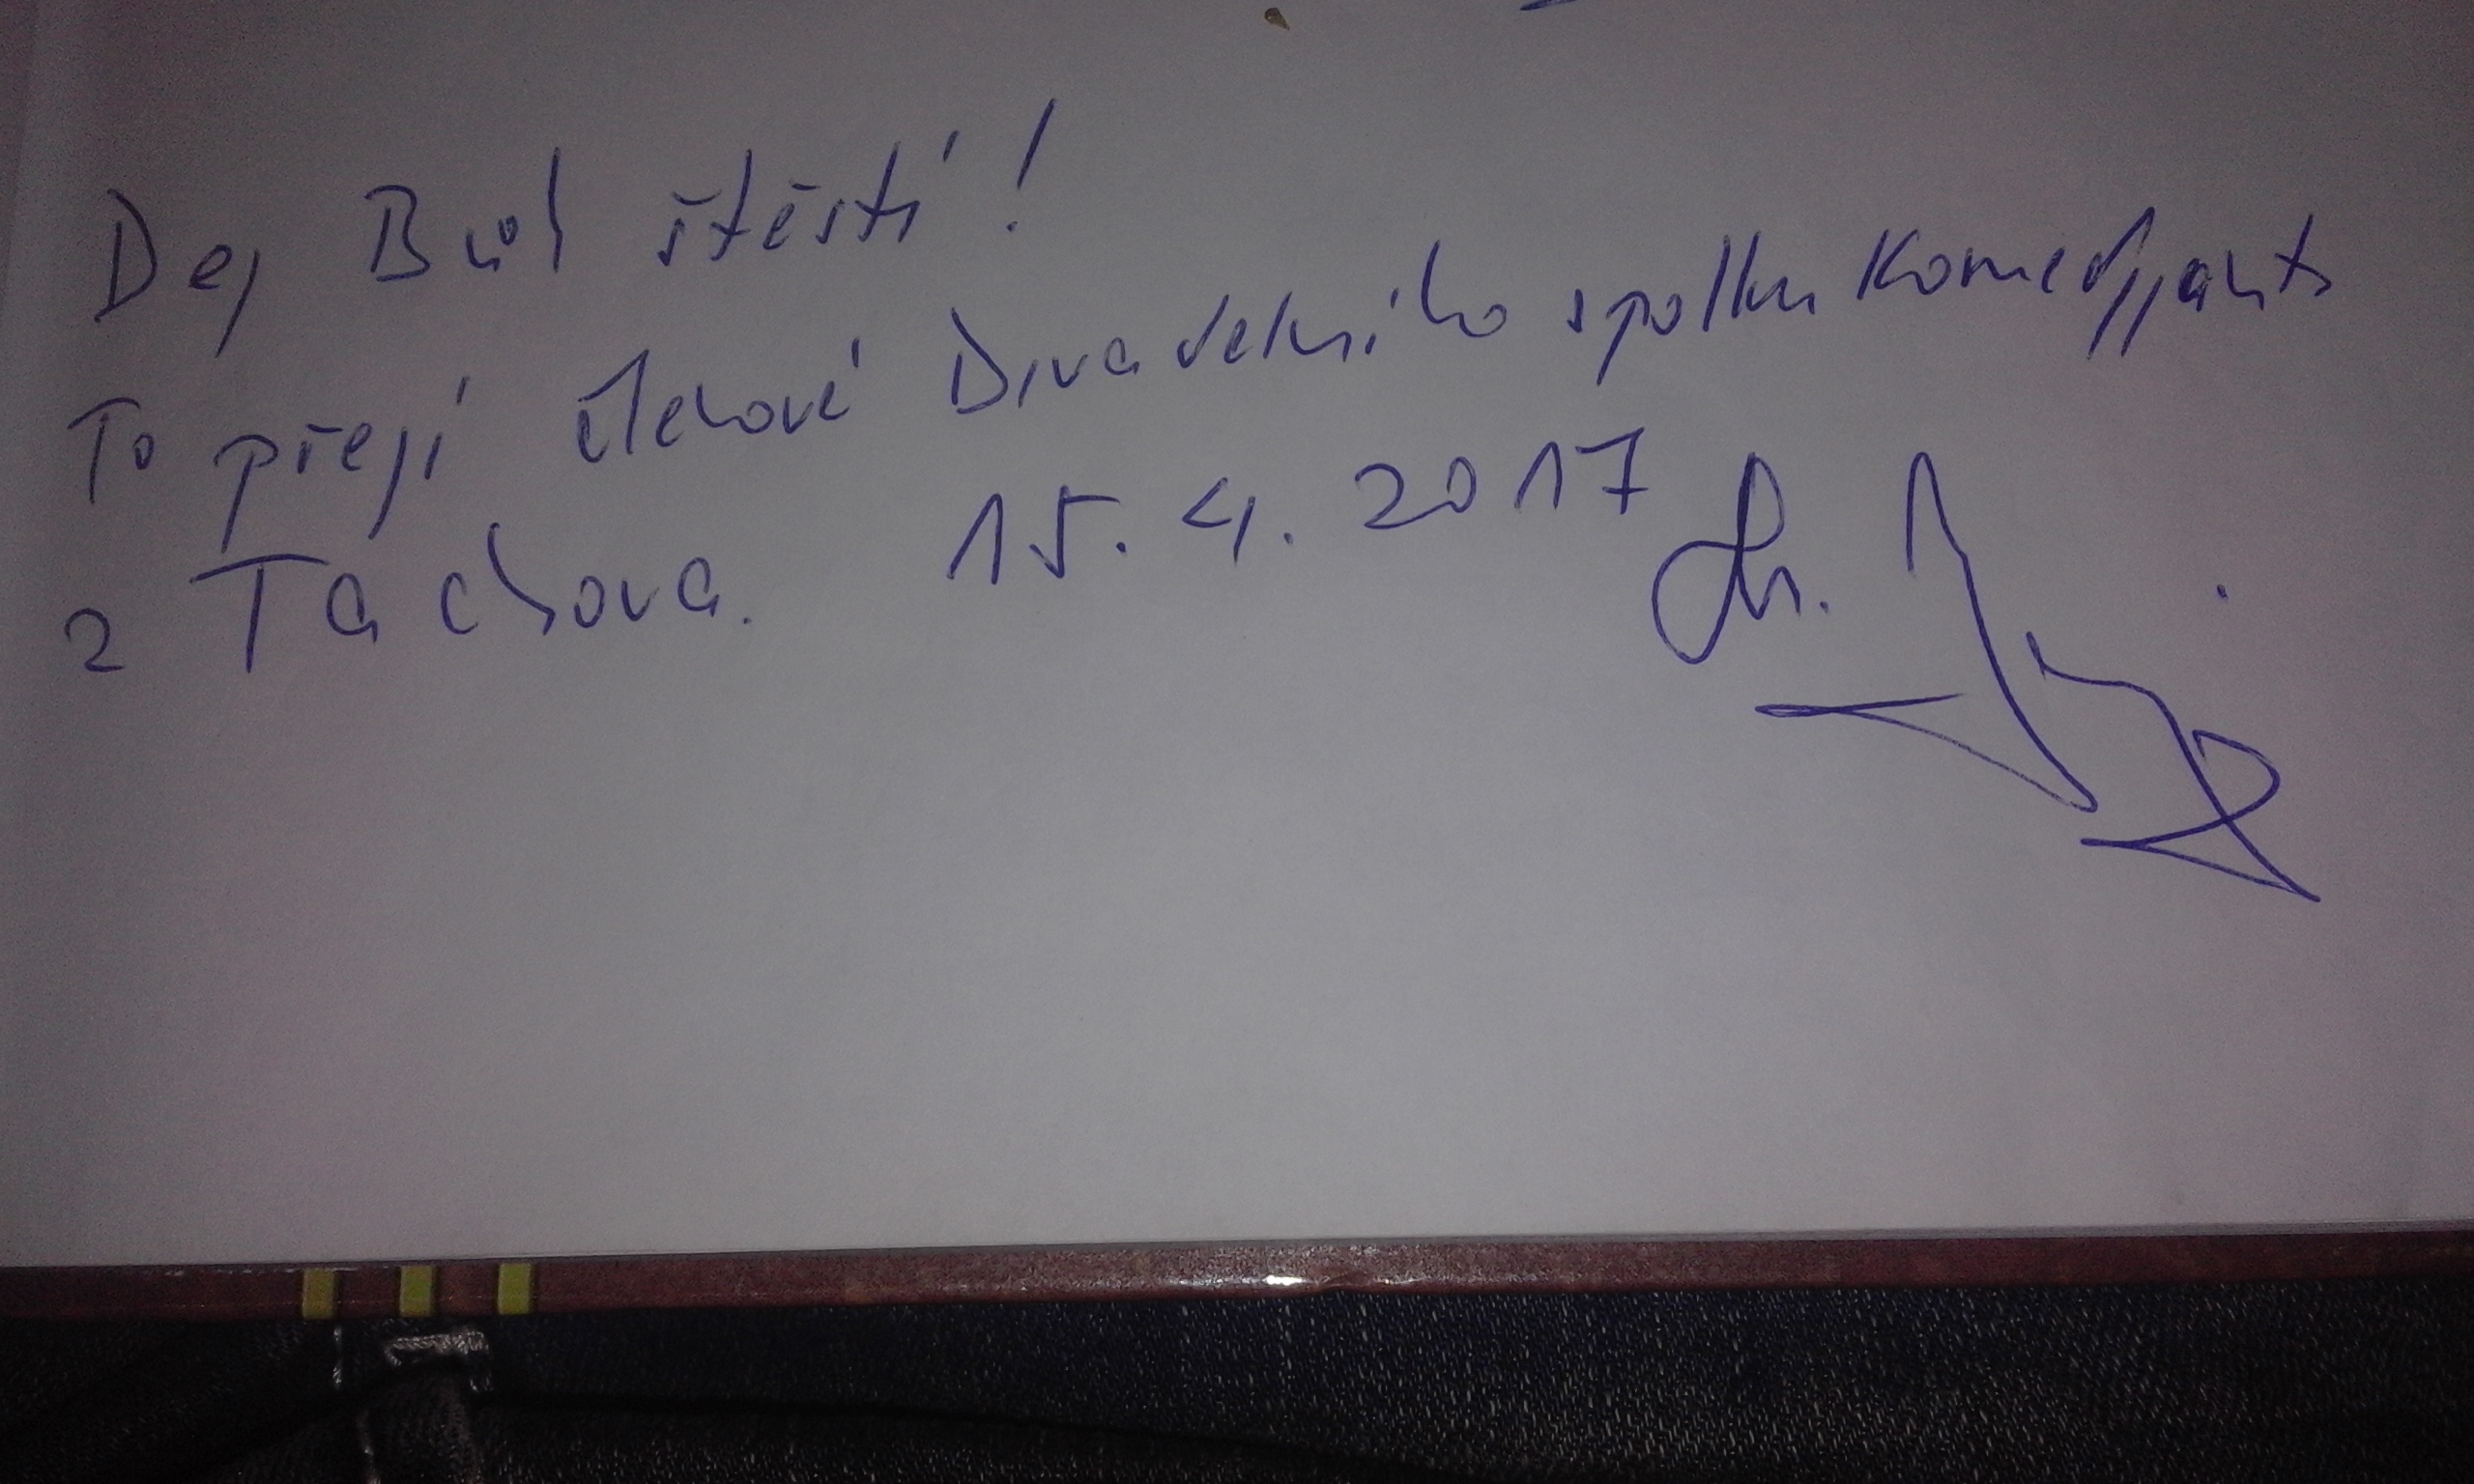 Dej Bůh štěstí!
To přejí členové Divadelního spolku Komedyjants
z Tachova. 15. 4. 2017